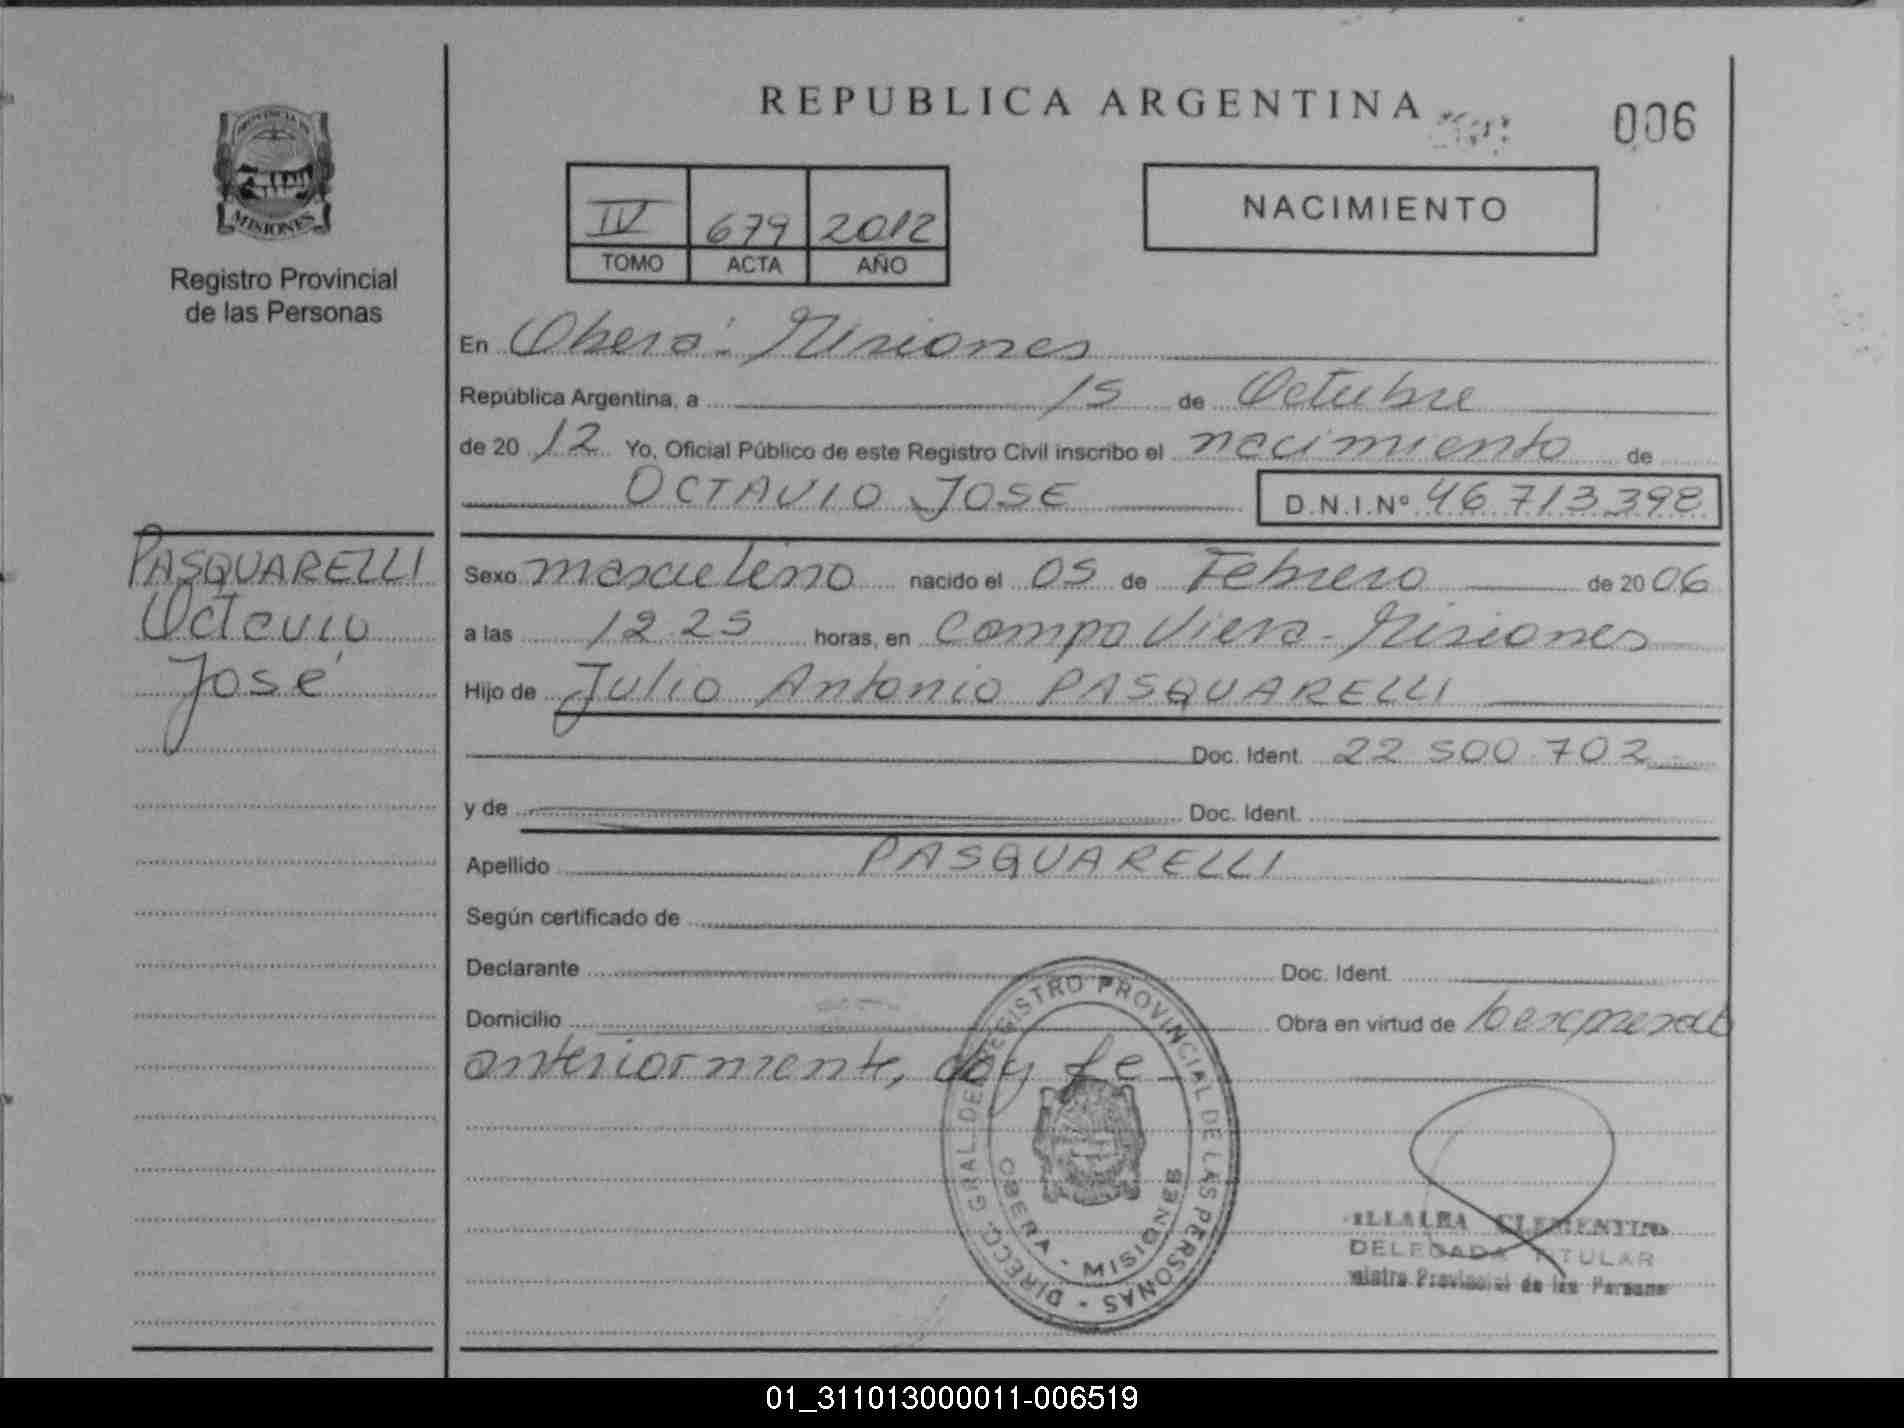 REPUBLICA ARGENTINA
006
PROVINCIA DE
MISIONES
Registro Provincial
de las Personas
IV 679 2012
TOMO ACTA AÑO
NACIMIENTO
En Oberá - Misiones
República Argentina, a 15 de Octubre
de 20 12 Yo, Oficial Público de este Registro Civil inscribo el nacimiento de
OCTAVIO JOSE D.N.I.Nº 46.713.398
PASQUARELLI
Octavio
José
Sexo masculino nacido el 05 de Febrero de 20 06
a las 12.25 horas, en Campo Viera - Misiones
Hijo de Julio Antonio PASQUARELLI
Doc. Ident. 22.500.702
y de Doc. Ident.
Apellido PASQUARELLI
Según certificado de
Declarante Doc. Ident.
Domicilio Obra en virtud de lo expresado
anteriormente, doy fe -
DIRECC. GRAL. DE REGISTRO PROVINCIAL DE LAS PERSONAS -
OBERA - MISIONES
CLEMENTINA
DELEGADA TITULAR
Provincial de las
01_311013000011-006519